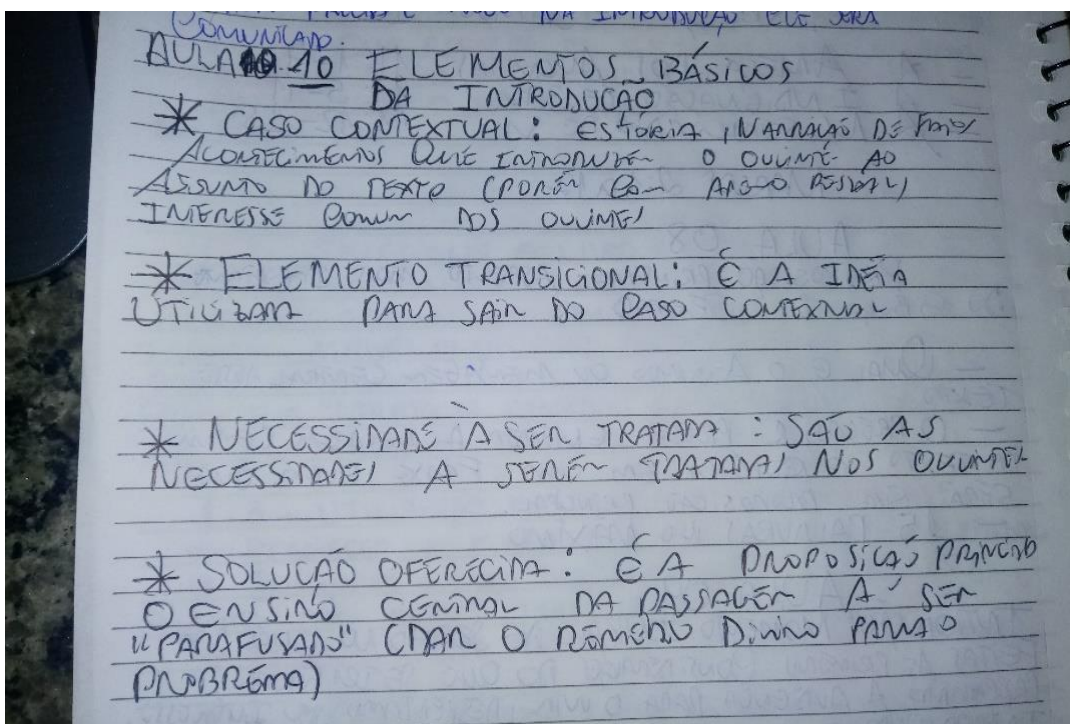 NA INTRODUÇÃO ELE SERÁ
COMUNICADO.
AULA 10 ELEMENTOS BÁSICOS
DA INTRODUCÃO
* CASO CONTEXTUAL: ESTÓRIA, NARRAÇÃO DE FATOS
ACONTECIMENTOS QUE INTRODUZEM O OUVINTE AO
ASSUNTO DO TEXTO (PORÉM COM PESSOAL)
INTERESSE COMUM DOS OUVINTES
* ELEMENTO TRANSICIONAL: É A IDÉIA
UTILIZADA PARA SAIR DO CASO CONTEXTUAL
* NECESSIDADE À SER TRATADA: SÃO AS
NECESSIDADES A SEREM TRATADAS NOS OUVINTES
* SOLUÇÃO OFERECIDA: É A PROPOSIÇÃO PRINCIPAL
O ENSINO CENTRAL DA PASSAGEM A SER
"PARAFUSADO" (DAR O REMÉDIO DIVINO PARA O
PROBREMA)